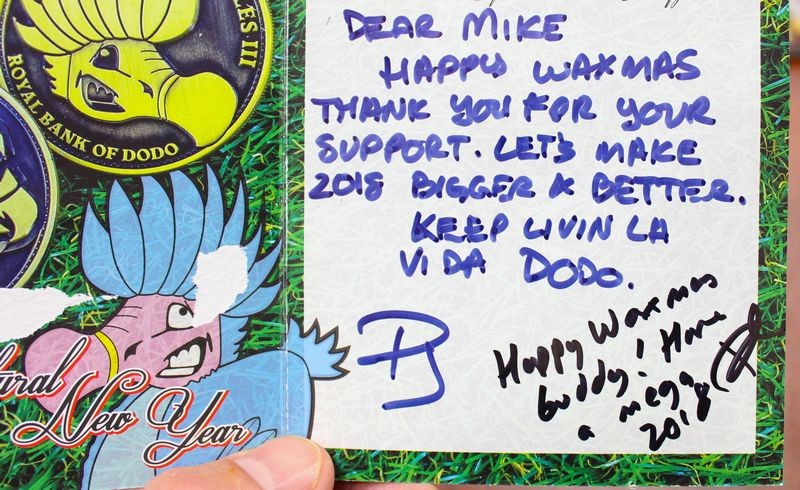 LES III
ROYAL BANK OF DODO
DEAR MIKE
HAPPY WAXMAS
THANK YOU FOR YOUR
SUPPORT. LET'S MAKE
2018 BIGGER & BETTER.
KEEP LIVIN LA
VIDA DODO.
Happy Waxmas
buddy! Have
a mega
2018
ural
New Year